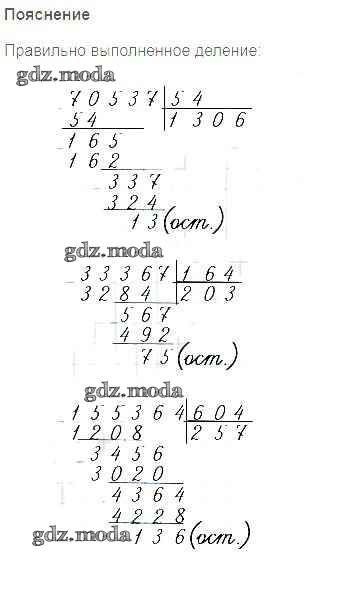 Пояснение
Правильно выполненное деление:
gdz.moda
70537 54
54 1306
165
162
337
324
13 (ост.)
gdz.moda
33367 164
3284 203
567
492
75 (ост.)
gdz.moda
155364 604
1208 257
3456
3020
4364
4228
gdz.moda 136 (ост.)